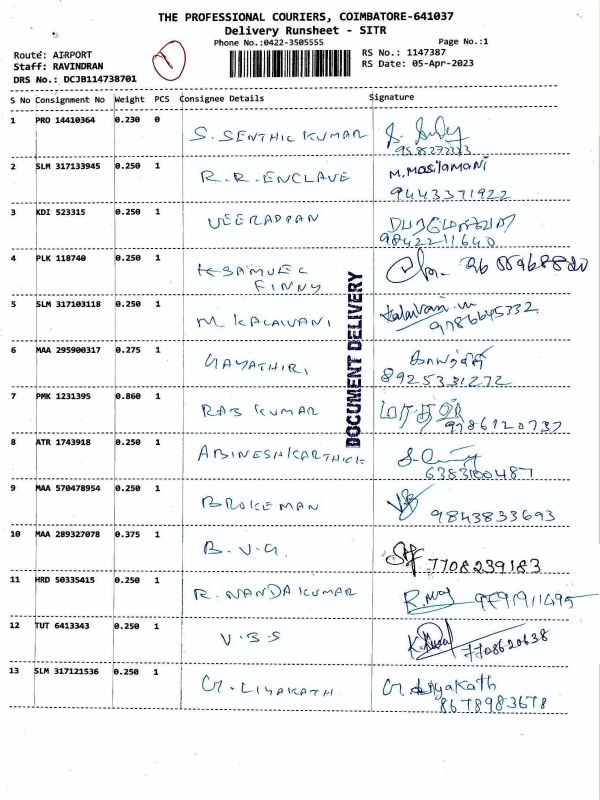 THE PROFESSIONAL COURIERS, COIMBATORE-641037
Delivery Runsheet - SITR
Phone No.:0422-3505555 Page No.:1
Route: AIRPORT RS No.: 1147387
Staff: RAVINDRAN RS Date: 05-Apr-2023
DRS No.: DCJB114738701
1
S No Consignment No Weight PCS Consignee Details Signature
1 PRO 14410364 0.230 0 S. SENTHIL KUMAR
2 SLM 317133945 0.250 1 R.R. ENCLAVE M. Masilamani
9443371922
3 KDI 523315 0.250 1 VEERAPPAN
9842211640
4 PLK 118740 0.250 1 K SAMUEL
FINNY
5 SLM 317103118 0.250 1 M KALAIVANI Kalaivani.m
9786645332
6 MAA 295900317 0.275 1 GAYATHIRI காயத்திரி
8925331272
7 PMK 1231395 0.860 1 RAJ KUMAR
9786120737
8 ATR 1743918 0.250 1 ABINESHKARTHICK
6383100487
9 MAA 570478954 0.250 1 BROKEMAN
9843833693
10 MAA 289327078 0.375 1 B.V.G.
7708239183
11 HRD 50335415 0.250 1 R. NANDAKUMAR
12 TUT 6413343 0.250 1 V.B.S
7708620638
13 SLM 317121536 0.250 1 G. LIYAKATH G. Liyakath
8678983678
DOCUMENT DELIVERY